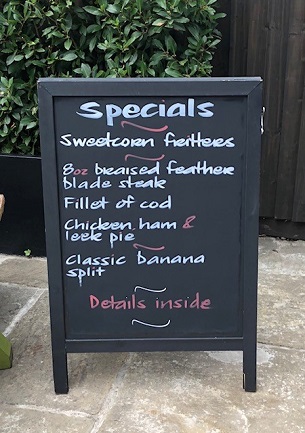 Specials
Sweetcorn fritters
8oz braised feather
blade steak
Fillet of cod
Chicken, ham &
leek pie
Classic banana
split
Details inside